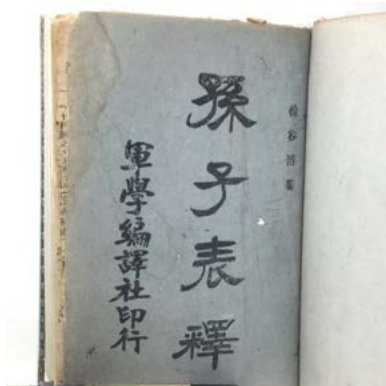 孫子表釋
軍學編譯社印行